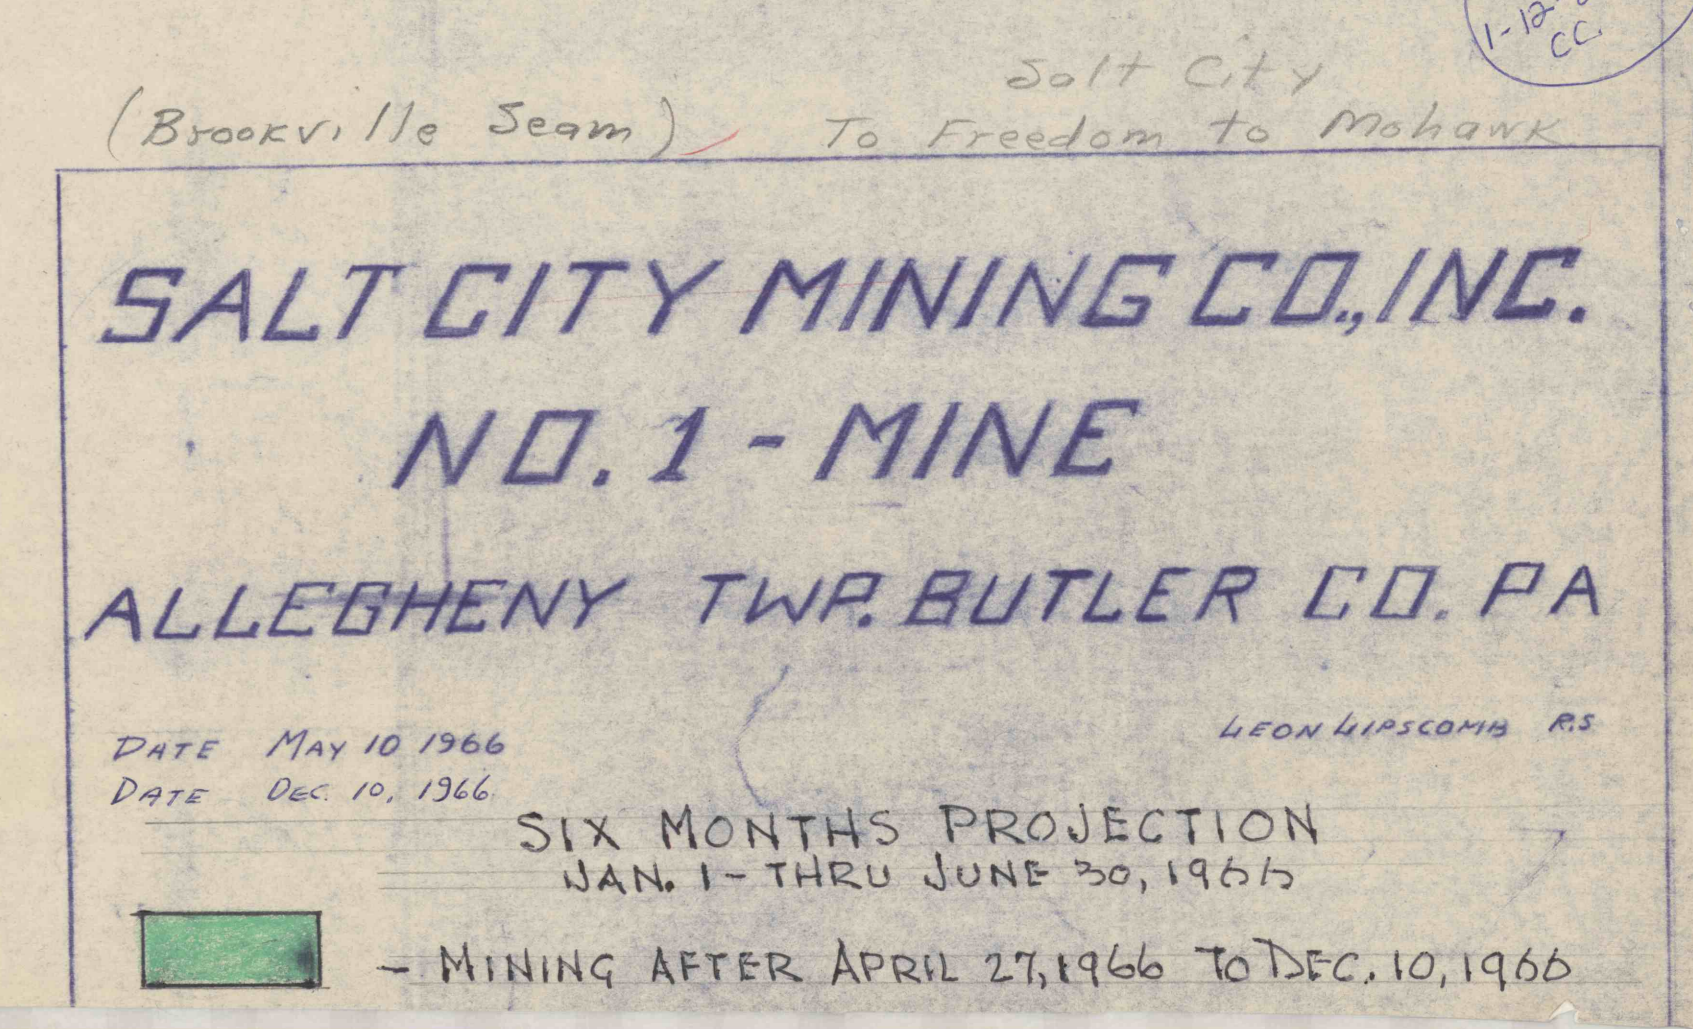 1-12-
CC.
Salt City
(Brookville Seam) To Freedom to Mohawk
SALT CITY MINING CO., INC.
NO. 1 - MINE
ALLEGHENY TWP. BUTLER CO. PA
LEON LIPSCOMB R.S
DATE MAY 10 1966
DATE DEC. 10, 1966
SIX MONTHS PROJECTION
JAN. 1 - THRU JUNE 30, 1966
- MINING AFTER APRIL 27, 1966 TO DEC. 10, 1966